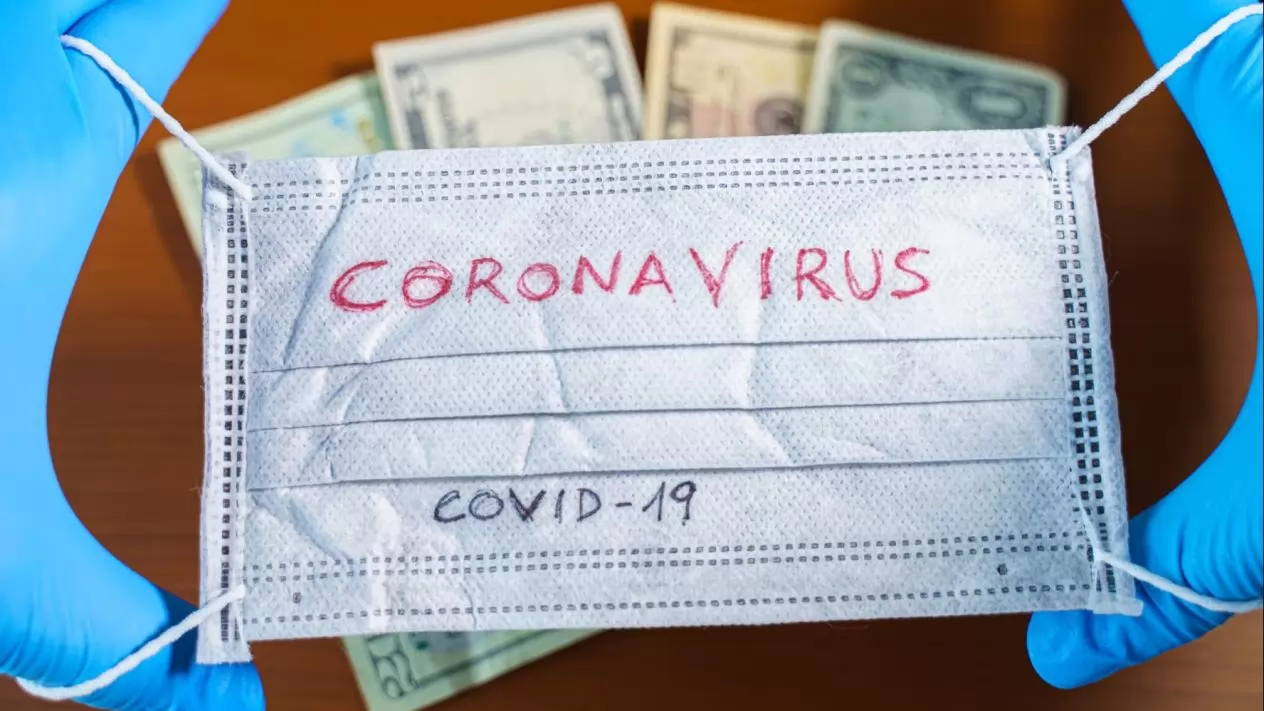 CORONAVIRUS
COVID-19